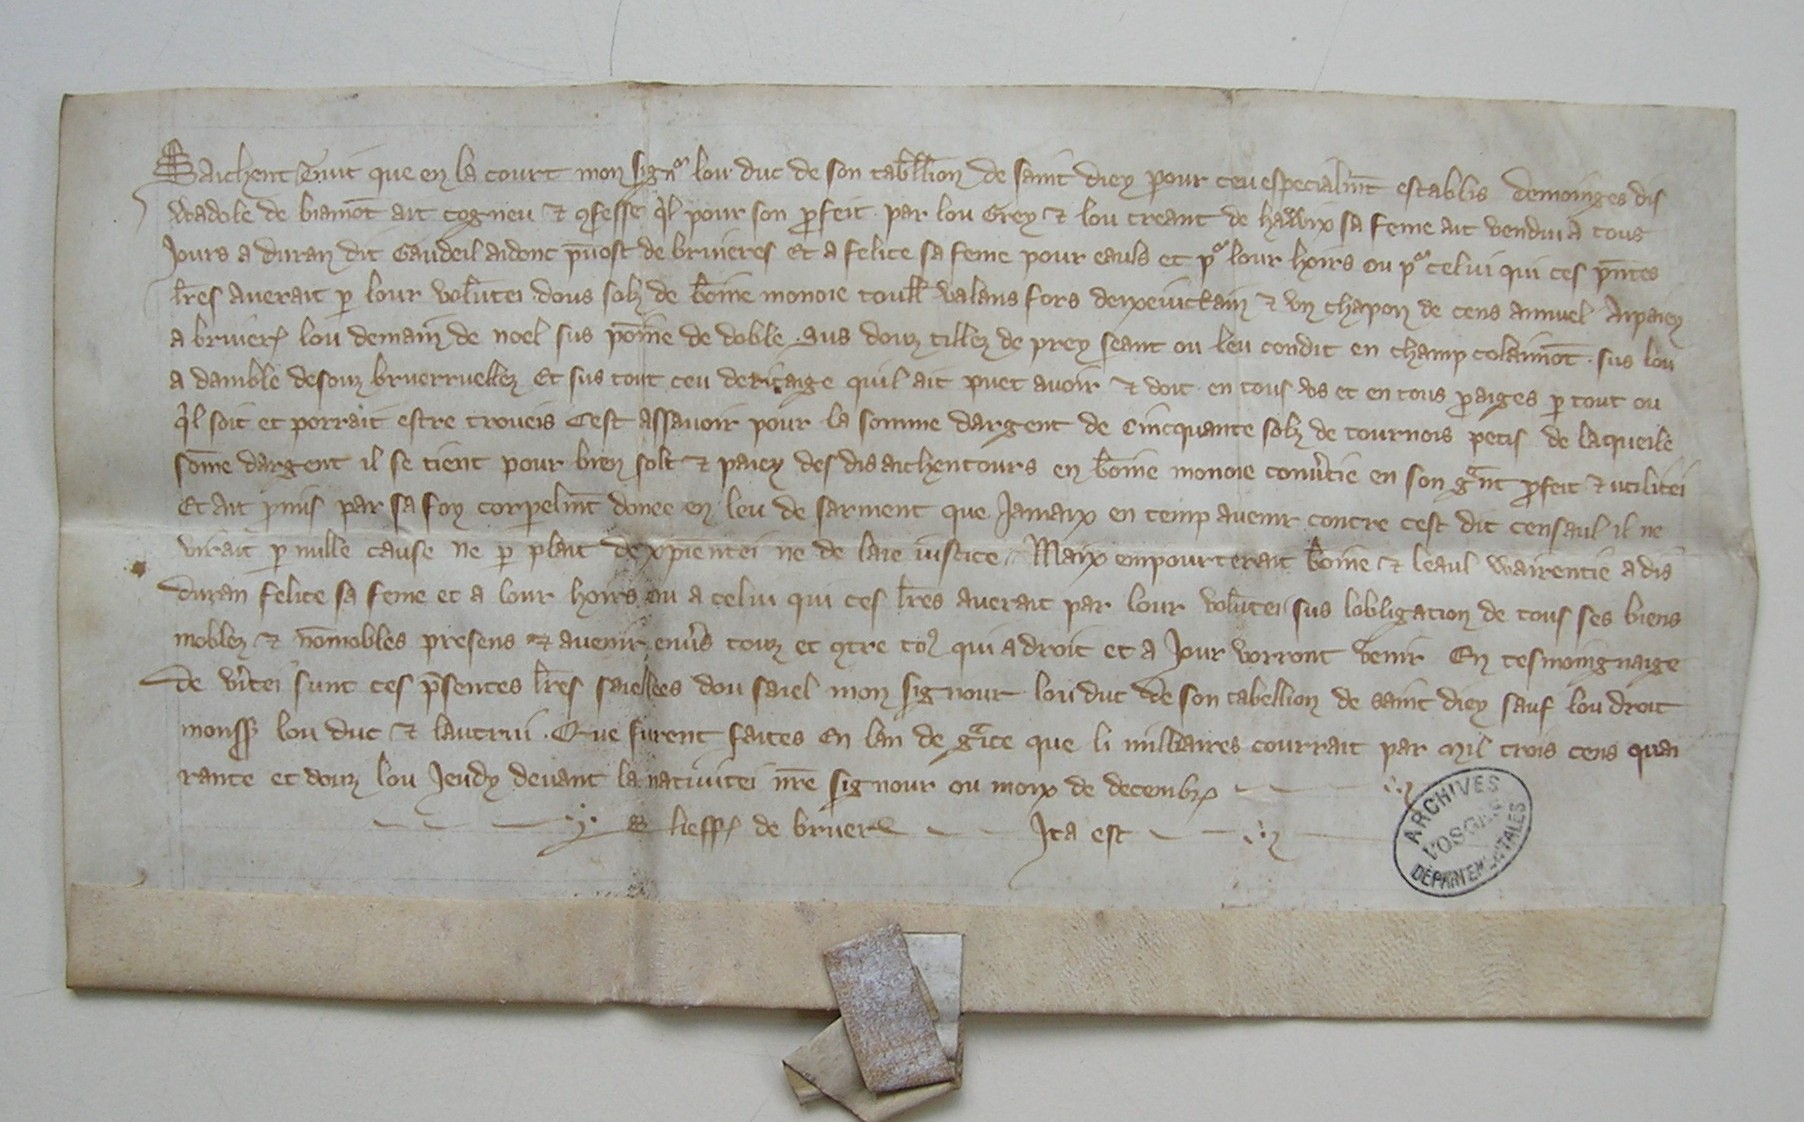 Saichent Tuit que en la court mon signor lou duc de son tabellion de saint diey pour ceu especialmt establis demoinges dis
Wadole de biamot ait cogneu & 9fessei ql pour son pfeit par lou Grey & lou creant de hawix sa feme ait vendui a tous
Jours a duran dit Gaudeil aidonc pvost de bruieres Et a felice sa feme pour eauls et por lour hoirs ou por celui qui ces pntes
lres averait p lour voluntei dous solz de bonne monoie toull valans fors de & un chapon de cens annuel Apaiey
a bruier lou demain de noel sus poinne de doble sus douz tillez de prey seant ou leu condit en champ colainnot sus lou
a damble desouz bruerruellez Et sus tout ceu deritaige quil ait puet avoir & doit en tous us et en tous paiges p tout ou
ql soit et porrait estre troveis Cest assavoir pour la somme dargent de Cincquante solz de tournois petis de laqueile
some dargent il se tient pour bien solt & paiey des dis aichentours en bonne monoie convtie en son grant pfeit & utilitei
Et ait pmis par sa foy corpelmt donee en leu de sarment que Jamaix en temp avenir contre cest dit censaul il ne
virait p nulle cause ne p plait de xpientei ne de laie iustice Maix empourterait bonne & leaul wairentie a dis
duran felice sa feme et a lour hoirs ou a celui qui ces lres averait par lour voluntei sus lobligacion de tous ses biens
moblez & nomobles presens & avenir envs touz et 9tre tos qui a droit et a Jour vorront venir En tesmoingnaige
de vritei sunt ces psentes lres saiellees dou saiel mon signour lou duc de son tabellion de saint diey sauf lou droit
monss lou duc & lautrui Que furent faites En lan de grace que li milliaires courrait par mil trois cens quai
rante et douz lou Jeudy devant la nativitei nre signour ou moix de decembr
lieff de bruer Ita est
ARCHIVES
VOSGES
DÉPARTEMENTALES